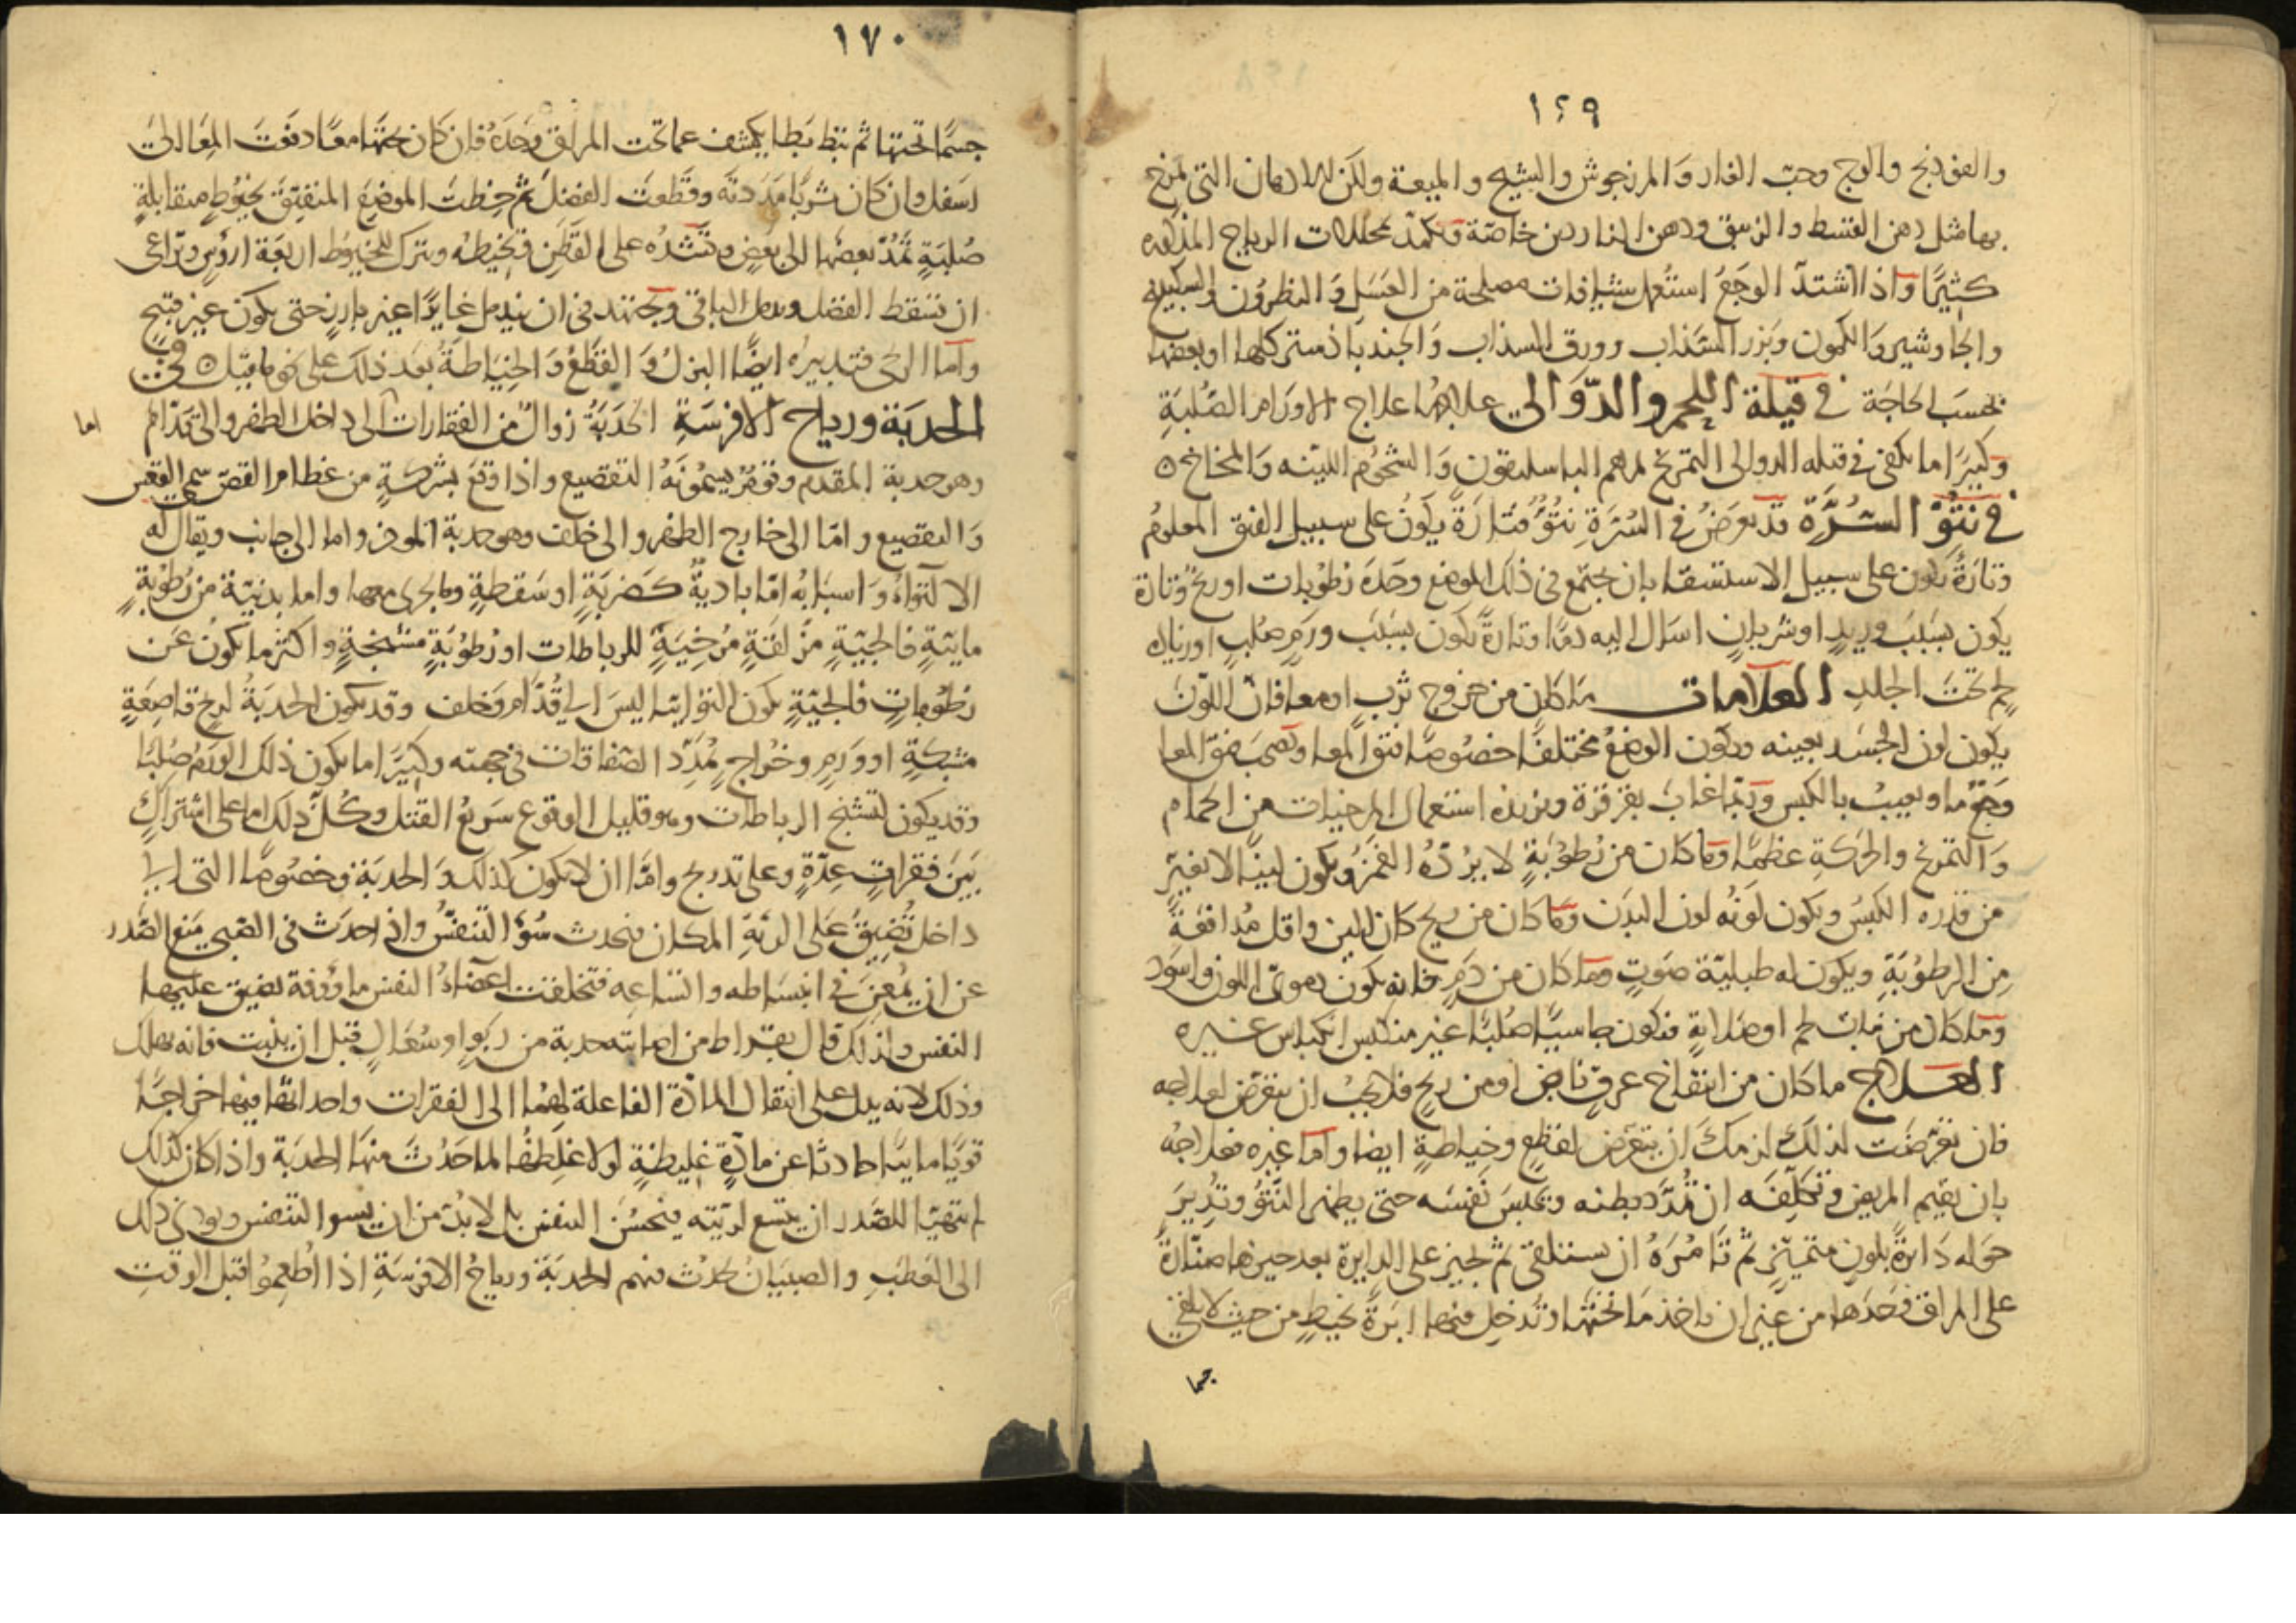 ١٤٩
والفوذنج والوج وحب الغار والمرزنجوش والشيح والميعة ولكن الادهان التي تمرخ
بها مثل دهن القسط والزنبق ودهن الناردين خاصة وتكمد محللات الرياح المذكوره
كثيرًا واذا اشتد الوجع استعمل شيافات مصلحة من العسل والنطرون والسكبينج
والجاوشير والكمون وبزر السذاب وورق السذاب والجندبادستر كلها او بعضها
بحسب الحاجة في قيلة اللحم والدوالي علاجها علاج الاورام الصلبة
وكثيرًا ما يكفي في قيله الدوالي التمريخ بمرهم الباسليقون والشحوم اللينه والمخاخ ه
في نتو السرة قد يعرض في السرة نتؤ فتارة يكون على سبيل الفتق المعلوم
وتارة يكون على سبيل الاستسقا بان يجتمع في ذلك الموضع وحده رطوبات او ريح وتارة
يكون بسبب وريد او شريان اسال اليه دمًا وتارة يكون بسبب ورم صلب او زيادة
لحم تحت الجلد العلامات ما كان من خروج ثرب او معا فان اللون
يكون لون الجسد بعينه ويكون الوضع مختلفا خصوصًا نتو المعا وتصحب فتق المعا
وجع ما ويغيب بالكبس وربما غاب بقرقرة ويزيده استعمال المرخيات من الحمام
والتمريخ والحركة عظمًا وما كان من رطوبة لا يرده الغمز ويكون لينًا لا يغير
من قدره الكبس ويكون لونه لون البدن وما كان من ريح كان الين واقل مدافعة
من الرطوبة ويكون له طبلية صوت وما كان من دم فانه يكون دموي اللون واسود
وما كان من نبات لحم او صلابة فيكون جاسيًا صلبًا غير منكبس انكباس غيره
العلاج ما كان من انتفاخ عرق نابض او من ريح فلا يجب ان يتعرض لعلاجه
فان تعرضت لذلك لزمك ان تتعرض لقطع وخياطة ايضا واما غيره فعلاجه
بان يقيم المريض وتكلفه ان يمدد بطنه ويحبس نفسه حتى يظهر النتؤ وتدير
حوله دايرة بلون متميز ثم تامره ان يستلقي ثم تحيز على الدايرة بعد حيزها صنارة
على المراق وحدها من غير ان ياخذ ما تحتها وتدخل فيها ابرة بخيط من حيث لا يلقي
جسما
١٧٠
جسمًا تحتها ثم تبط بطا يكشف عما تحت المراق وحده فان كان تحتها معًا دفعت المعا الى
اسفل وان كان ثربًا مددته وقطعت الفضل ثم خطت الموضع المنفتق بخيوط متقابلة
صلبة تمد بعضها الى بعض وتشده على القطن وتخيطه وتترك للخيوط اربعة ارؤس وتراعي
ان تسقط الفضل ويدمل الباقي وتجتهد في ان يندمل غايرًا غير بارز حتى يكون غير قبيح
واما الريحي فتدبيره ايضًا البزل والقطع والخياطة بعد ذلك على نحو ما قيل ه في
الحدبة ورياح الافرسة الحدبة زوال من الفقارات الى داخل الظهر والى قدام
اما
وهو حدبة المقدم وقوم يسمونه التقصيع واذا وقع بشركة من عظام القص سمي القعس
والتقصيع واما الى خارج الظهر والى خلف وهو حدبة الموخر واما الى جانب ويقال له
الالتواء واسبابه اما بادية كضربة او سقطة وما يجري معها واما بدنية من رطوبة
مايية فالجية مزلقة مرخية للرباطات او رطوبة مشنجة واكثر ما يكون عن
رطوبات فالجية يكون التوايا ليس الى قدام وخلف وقد يكون الحدبة لريح قاصعة
مشبكة او ورم وخراج يمدد الصفاقات في جهته وكثيرًا ما يكون ذلك الورم صلبًا
وقد يكون لتشنج الرباطات وهو قليل الوقوع سريع القتل وكل ذلك اما على اشتراك
بين فقرات عدة وعلى تدريج واما ان لا يكون كذلك والحدبة وخصوصًا التي الى
داخل تضيق على الرئة المكان فيحدث سوء التنفس واذا حدث في الصبي منع الصدر
عن ان يمعن في انبساطه واتساعه فتخلفت اعضاء النفس ماووفة تضيق عليها
النفس ولذلك قال بقراط من اصابته حدبة من ربو او سعال قبل ان ينبت فانه يهلك
وذلك لانه يدل على انتقال المادة الفاعلة لهما الى الفقرات واحداثها فيها خراجًا
قويًا ماييًا حادثا عن مادة غليظة لولا غلظها لما حدث منها الحدبة واذا كان كذلك
لم يتهيا للصدر ان يتسع لريته فيحسن النفس بل لا بد من ان يسو التنفس ويودي ذلك
الى العطب والصبيان تحدث فيهم الحدبة ورياح الافرسة اذا اطعموا قبل الوقت